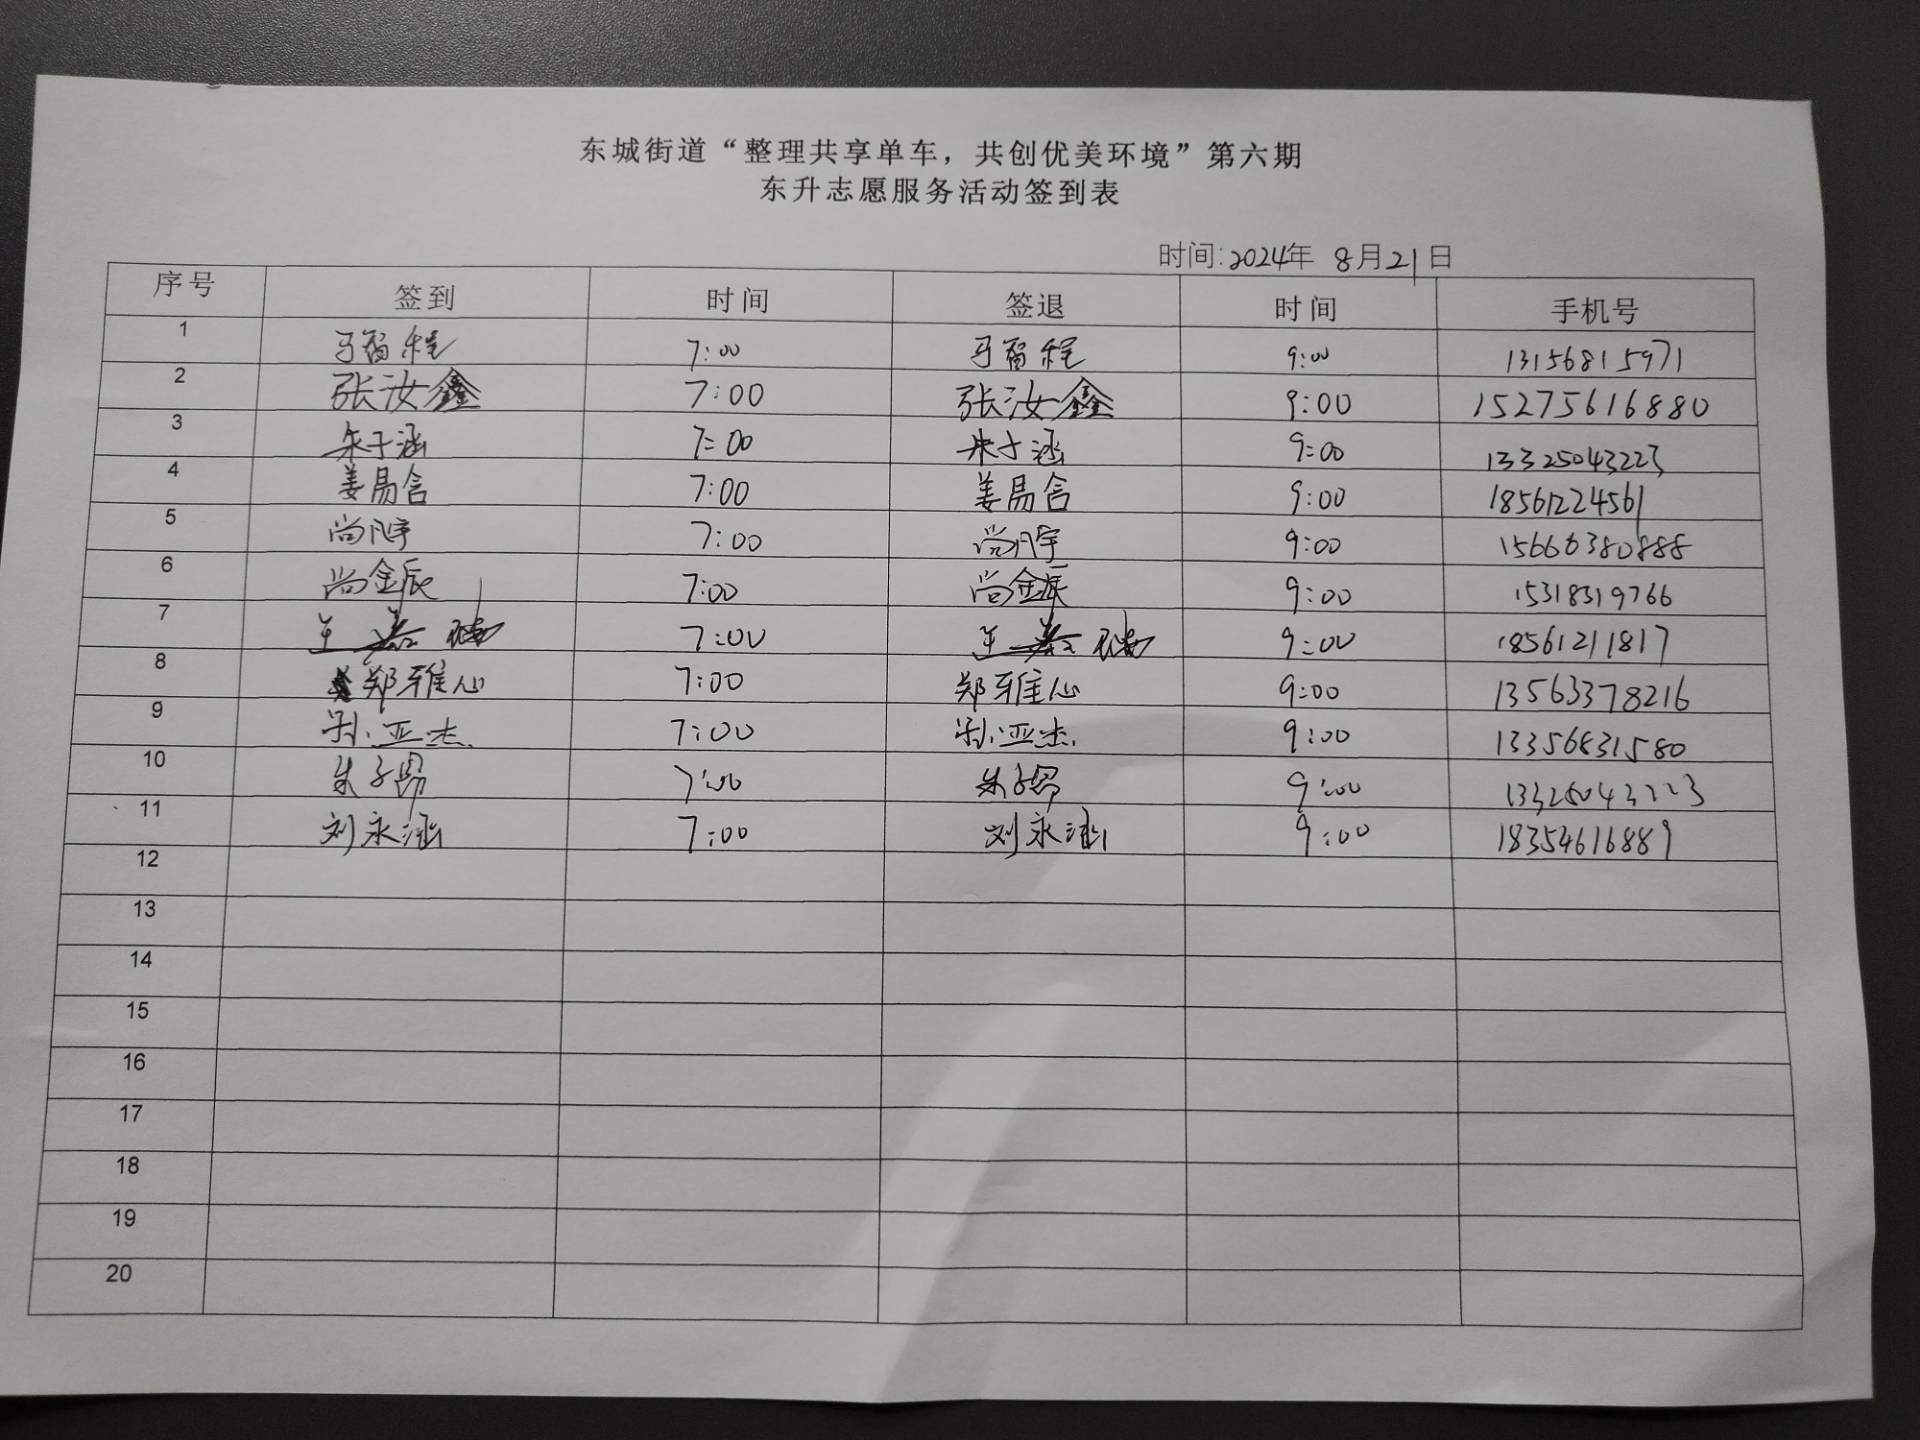 东城街道“整理共享单车，共创优美环境”第六期
东升志愿服务活动签到表
时间:2024年 8月21日
序号 签到 时间 签退 时间 手机号
1 马智程 7:00 马智程 9:00 13156815971
2 张汝鑫 7:00 张汝鑫 9:00 15275616880
3 朱子涵 7:00 朱子涵 9:00 13325043223
4 姜易含 7:00 姜易含 9:00 18561224561
5 尚凡宇 7:00 尚凡宇 9:00 15666380888
6 尚金辰 7:00 尚金辰 9:00 15318319766
7 王嘉 7:00 王嘉 9:00 18561211817
8 郑雅心 7:00 郑雅心 9:00 13563378216
9 孙亚杰 7:00 孙亚杰 9:00 13356831580
10 朱子昂 7:00 朱子昂 9:00 13325043223
11 刘永涵 7:00 刘永涵 9:00 18354616889
12
13
14
15
16
17
18
19
20